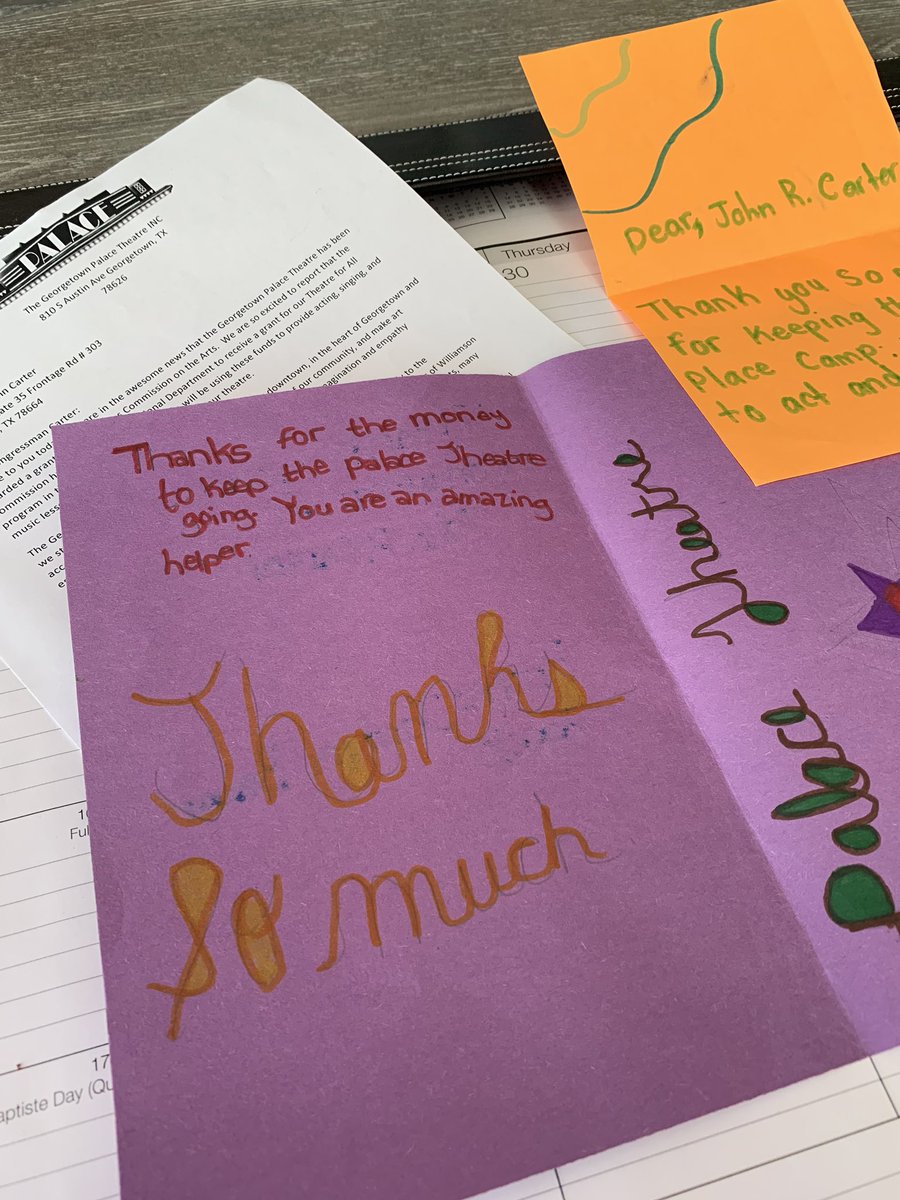 PALACE
The Georgetown Palace Theatre INC
810 S Austin Ave Georgetown, TX
78626
n Carter
ate 35 Frontage Rd # 303
TX 78664
ngressman Carter:
e to you tod
are in the awesome news that the Georgetown Palace Theatre has been
arded a gran
Commission on the Arts. We are so excited to report that the
ommission h
onal Department to receive a grant for our Theatre for All
program in t
will be using these funds to provide acting, singing, and
music less
our theatre.
The Ge
downtown, in the heart of Georgetown and
we st
of our community, and make art
acc
magination and empathy
to the
of Williamson
ts, many
Thursday
30
Dear, John R. Carter
Thank you so
for keeping th
Place Camp.
to act and
Thanks for the money
to keep the palace Theatre
going. You are an amazing
helper.
Thanks
So much
Palace
Theatre
17
aptiste Day (Qu